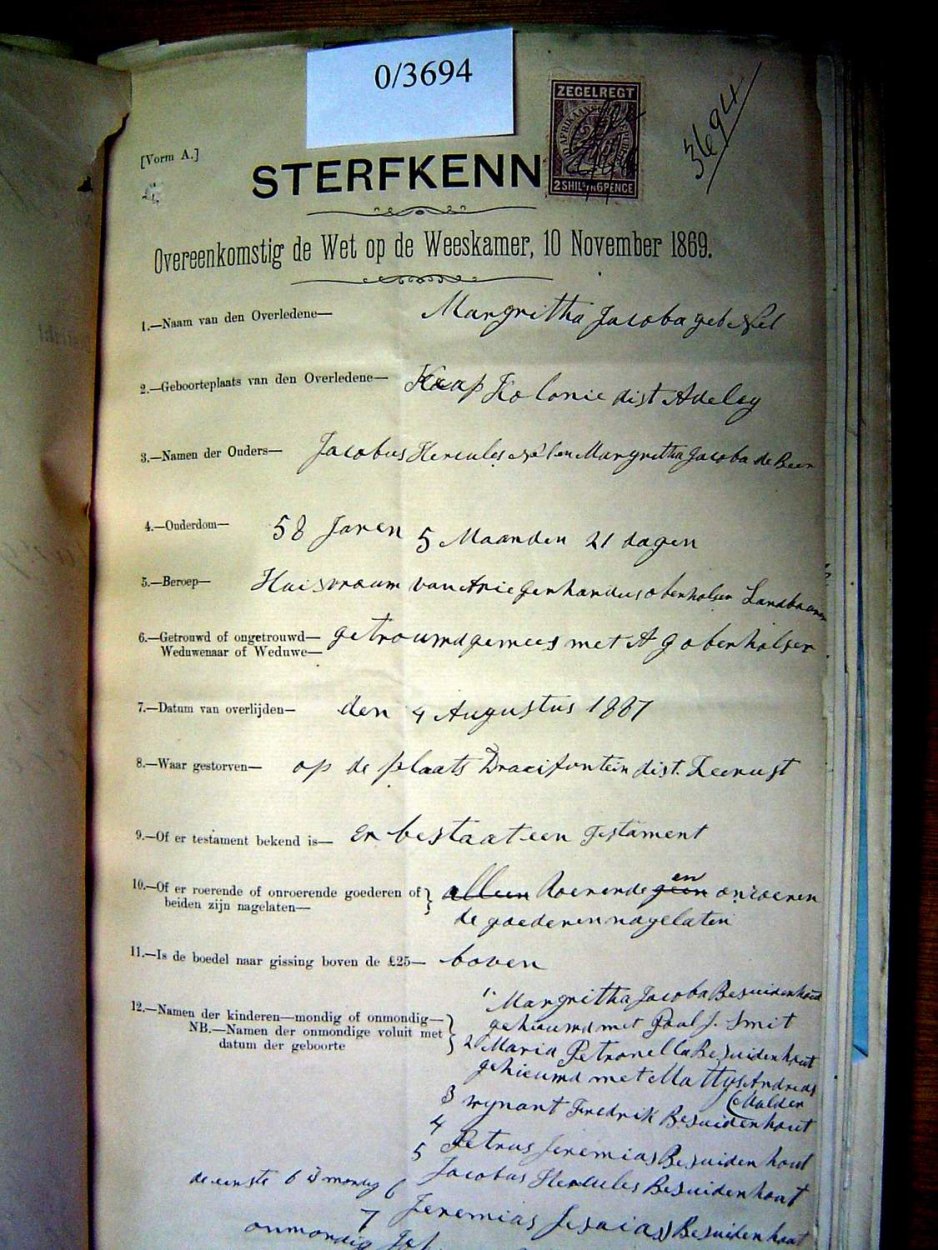 0/3694
ZEGELREGT
2 SHIL'N 6 PENCE
3694
[Vorm A.]
STERFKENN
Overeenkomstig de Wet op de Weeskamer, 10 November 1869.
1.—Naam van den Overledene— Margritha Jacoba geb Nel
2.—Geboorteplaats van den Overledene— Kaap Kolonie dist Adeley
3.—Namen der Ouders— Jacobus Hercules Nel en Margritha Jacoba de Beer
4.—Ouderdom— 58 Jaren 5 Maanden 21 dagen
5.—Beroep— Huisvrouw van obenholser Landbouwer
6.—Getrouwd of ongetrouwd— getrouwd gewees met A G obenholser
Weduwenaar of Weduwe—
7.—Datum van overlijden— den 4 Augustus 1887
8.—Waar gestorven— op de plaats Draaifontein dist. Zeerust
9.—Of er testament bekend is— Er bestaat een Testament
10.—Of er roerende of onroerende goederen of alleen Roerende geen en onroeren
beiden zijn nagelaten— de goederen nagelaten
11.—Is de boedel naar gissing boven de £25— boven
12.—Namen der kinderen—mondig of onmondig— 1 Margritha Jacoba Besuidenhout
NB.—Namen der onmondige voluit met gehieuwd met Paul J. Smit
datum der geboorte 2 Maria Petronella Besuidenhout
gehieuwd met Mattys Andreas
Mulder
3 Wynant Fredrik Besuidenhout
4 Petrus Jeremias Besuidenhout
5 Jacobus Hercules Besuidenhout
de eerste 6 is mondig 6 Jeremias Jesaias Besuidenhout
7
onmondig